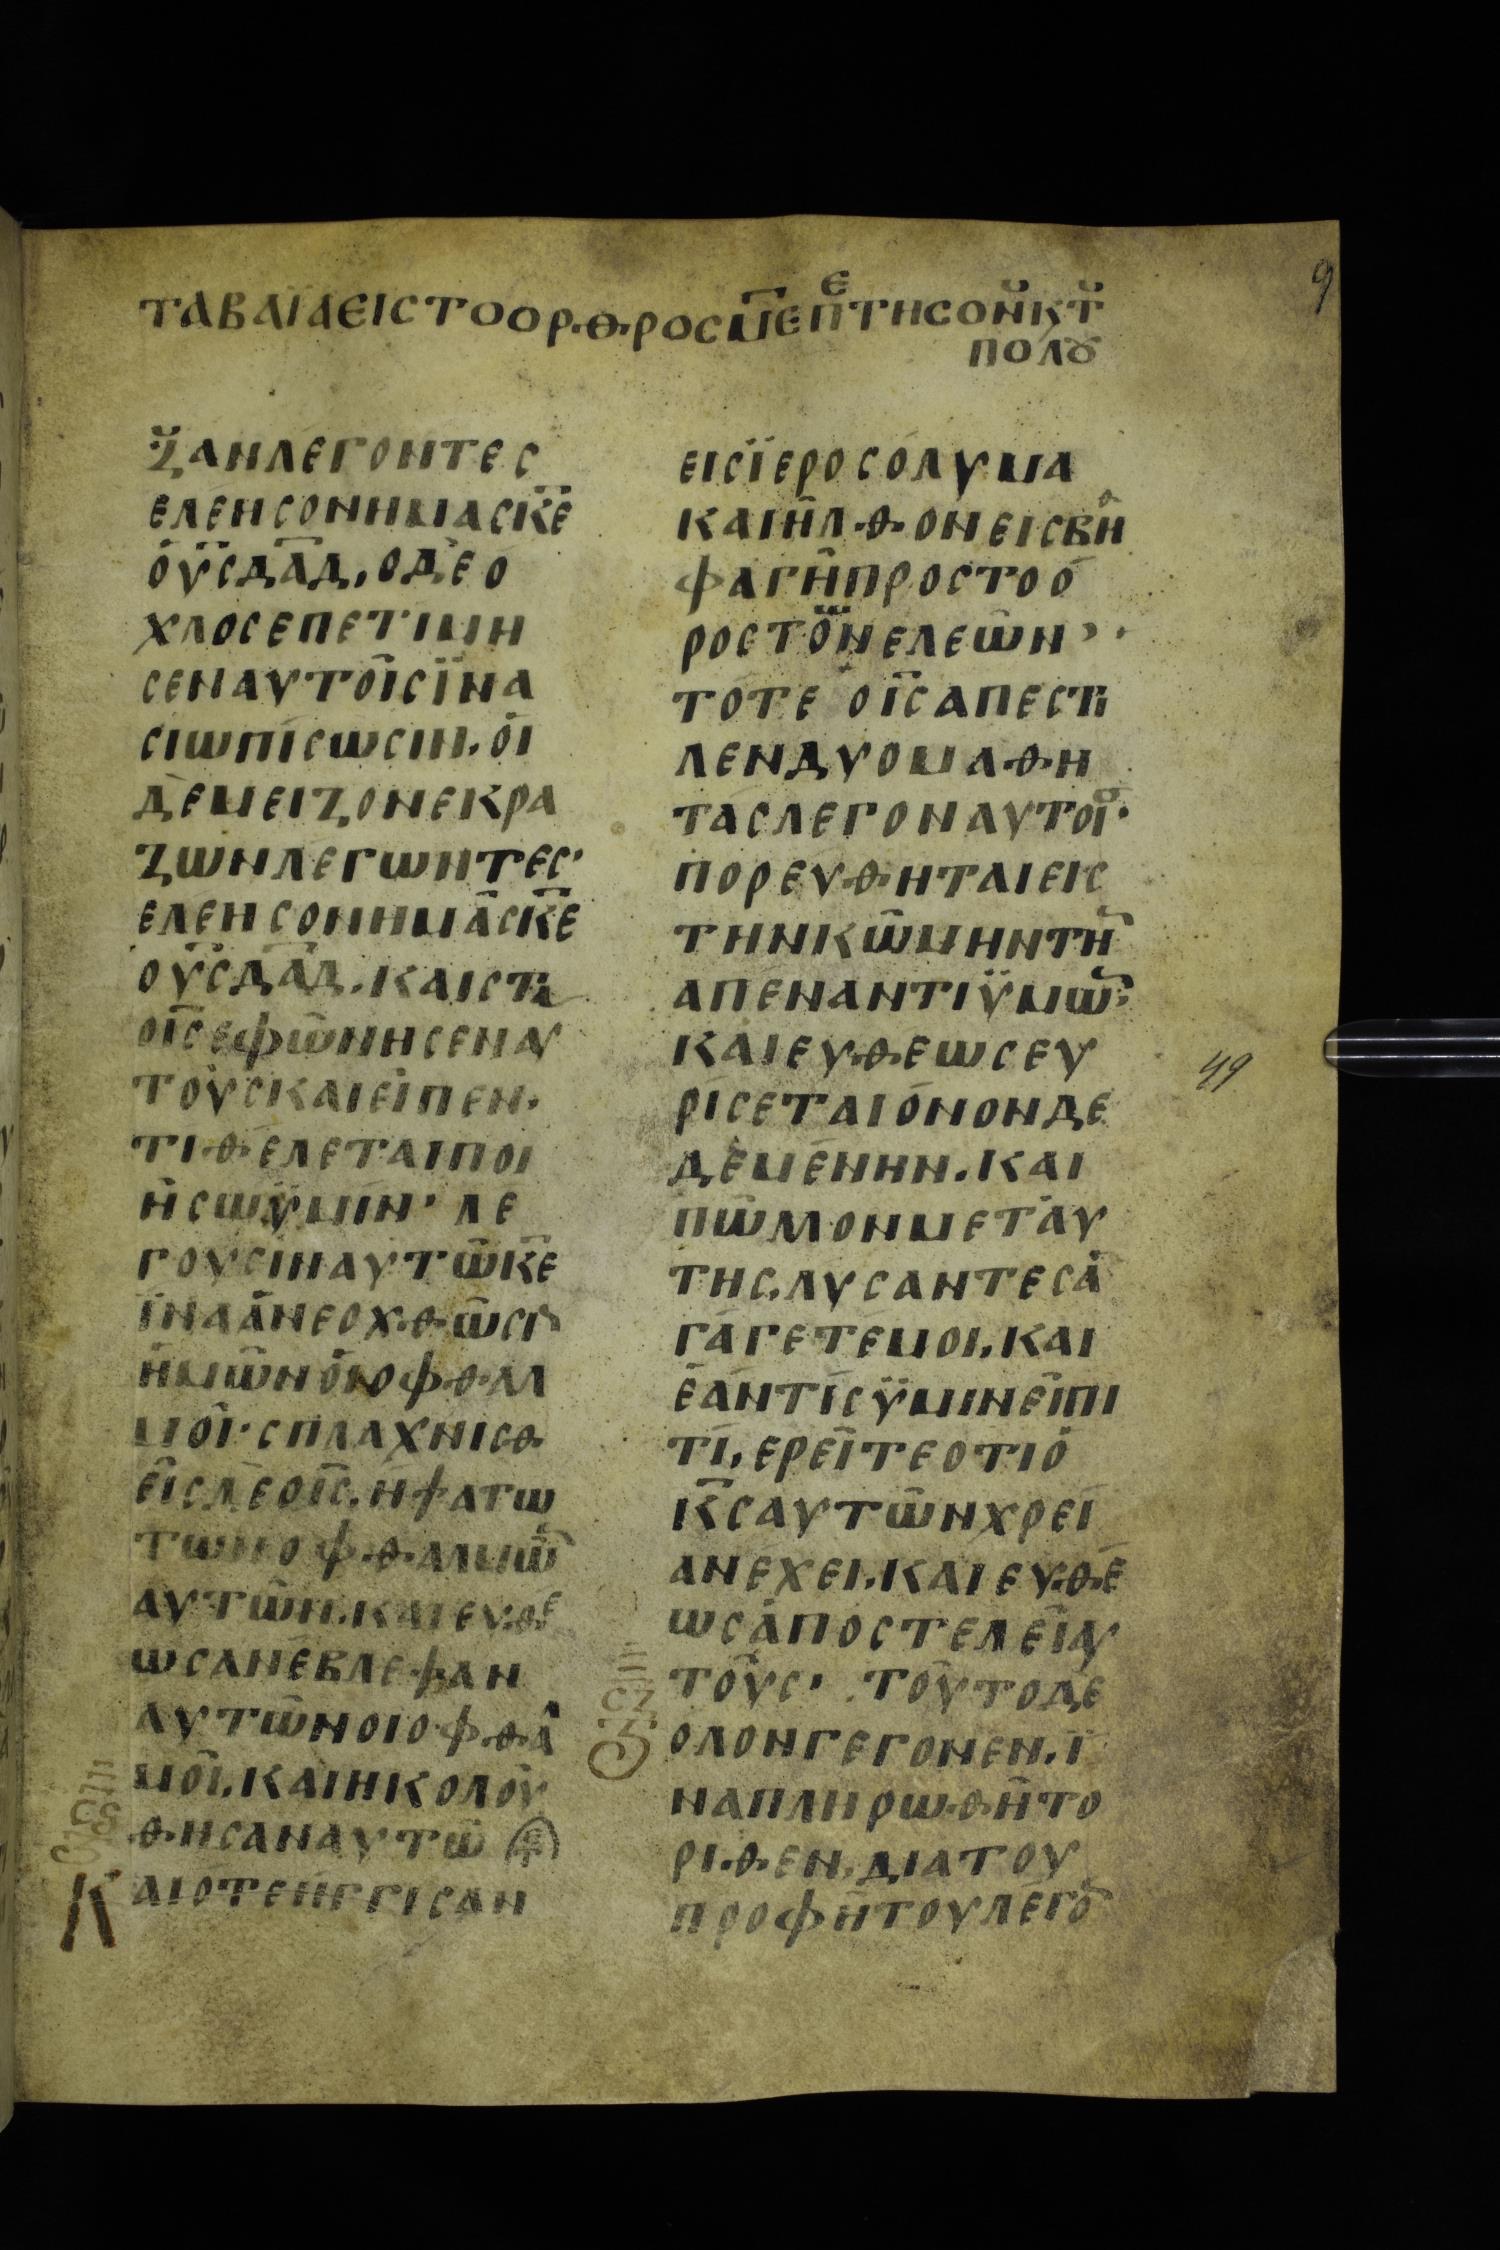 ΤΑΒΑΪΑΕΙΣΤΟΟΡΘΡΟΣ
ΠΟΛȢ
9
ΖΑΝΛΕΓΟΝΤΕΣ
ΕΛΕΗΣΟΝΗΜΑΣΚ̅Ε
ΟΥ̅ΣΔΑ̅Δ, ΟΔΕΟ
ΧΛΟΣΕΠΕΤΙΜΗ
ΣΕΝΑΥΤΟΙΣΪΝΑ
ΣΙΩΠΙΣΩΣΙΝ. ΟΙ
ΔΕΜΕΙΖΟΝΕΚΡΑ
ΖΩΝΛΕΓΩΝΤΕΣ·
ΕΛΕΗΣΟΝΗΜΑΣΚ̅Ε
ΟΥ̅ΣΔΑ̅Δ. ΚΑΙΣΤΑ
ΟΙ̅ΣΕΦΩΝΗΣΕΝΑΥ
ΤΟΥΣΚΑΙΕΙΠΕΝ.
ΤΙΘΕΛΕΤΑΙΠΟΙ
ΗΣΩΫΜΙΝ· ΛΕ
ΓΟΥΣΙΝΑΥΤΩΚ̅Ε
ΪΝΑΑΝΕΟΧΘΩΣΙΝ
ΗΜΩΝΟΙΟΦΘΑΛ
ΜΟΙ· ΣΠΛΑΧΝΙΣΘ
ΕΙΣΔΕΟΙ̅Σ. ΗΨΑΤΩ
ΤΩΝΟΦΘΑΛΜΩ̅
ΑΥΤΩΝ. ΚΑΙΕΥΘΕ
ΩΣΑΝΕΒΛΕΨΑΝ
ΑΥΤΩΝΟΙΟΦΘΑΛ
ΜΟΙ. ΚΑΙΗΚΟΛΟΥ
ΘΗΣΑΝΑΥΤΩ
ΚΑΙΟΤΕΗΓΓΙΣΑΝ
ΕΙΣΪΕΡΟΣΟΛΥΜΑ
ΚΑΙΗΛΘΟΝΕΙΣΒΗΘ
ΦΑΓΗΠΡΟΣΤΟΟ
ΡΟΣΤΟΝΕΛΕΩΝ
ΤΟΤΕ ΟΙ̅ΣΑΠΕΣΤΗ
ΛΕΝΔΥΟΜΑΘΗ
ΤΑΣΛΕΓΟΝΑΥΤΟΙΣ·
ΠΟΡΕΥΘΗΤΑΙΕΙΣ
ΤΗΝΚΩΜΗΝΤΗ̅
ΑΠΕΝΑΝΤΙΫΜΩ̅
ΚΑΙΕΥΘΕΩΣΕΥ
ΡΙΣΕΤΑΙΟΝΟΝΔΕ
ΔΕΜΕΝΗΝ. ΚΑΙ
ΠΩΛΟΝΜΕΤΑΥ
ΤΗΣ. ΛΥΣΑΝΤΕΣΑ
ΓΑΓΕΤΕΜΟΙ. ΚΑΙ
ΕΑΝΤΙΣΫΜΙΝΕΙΠΙ
ΤΙ, ΕΡΕΙΤΕΟΤΙΟ
Κ̅ΣΑΥΤΩΝΧΡΕΙ
ΑΝΕΧΕΙ. ΚΑΙΕΥΘΕ
ΩΣΑΠΟΣΤΕΛΕΙΑΥ
ΤΟΥΣ· ΤΟΥΤΟΔΕ
ΟΛΟΝΓΕΓΟΝΕΝ. Ϊ
ΝΑΠΛΗΡΩΘΗΤΟ
ΡΙΘΕΝ. ΔΙΑΤΟΥ
ΠΡΟΦΗΤΟΥΛΕΓΟ̅
49